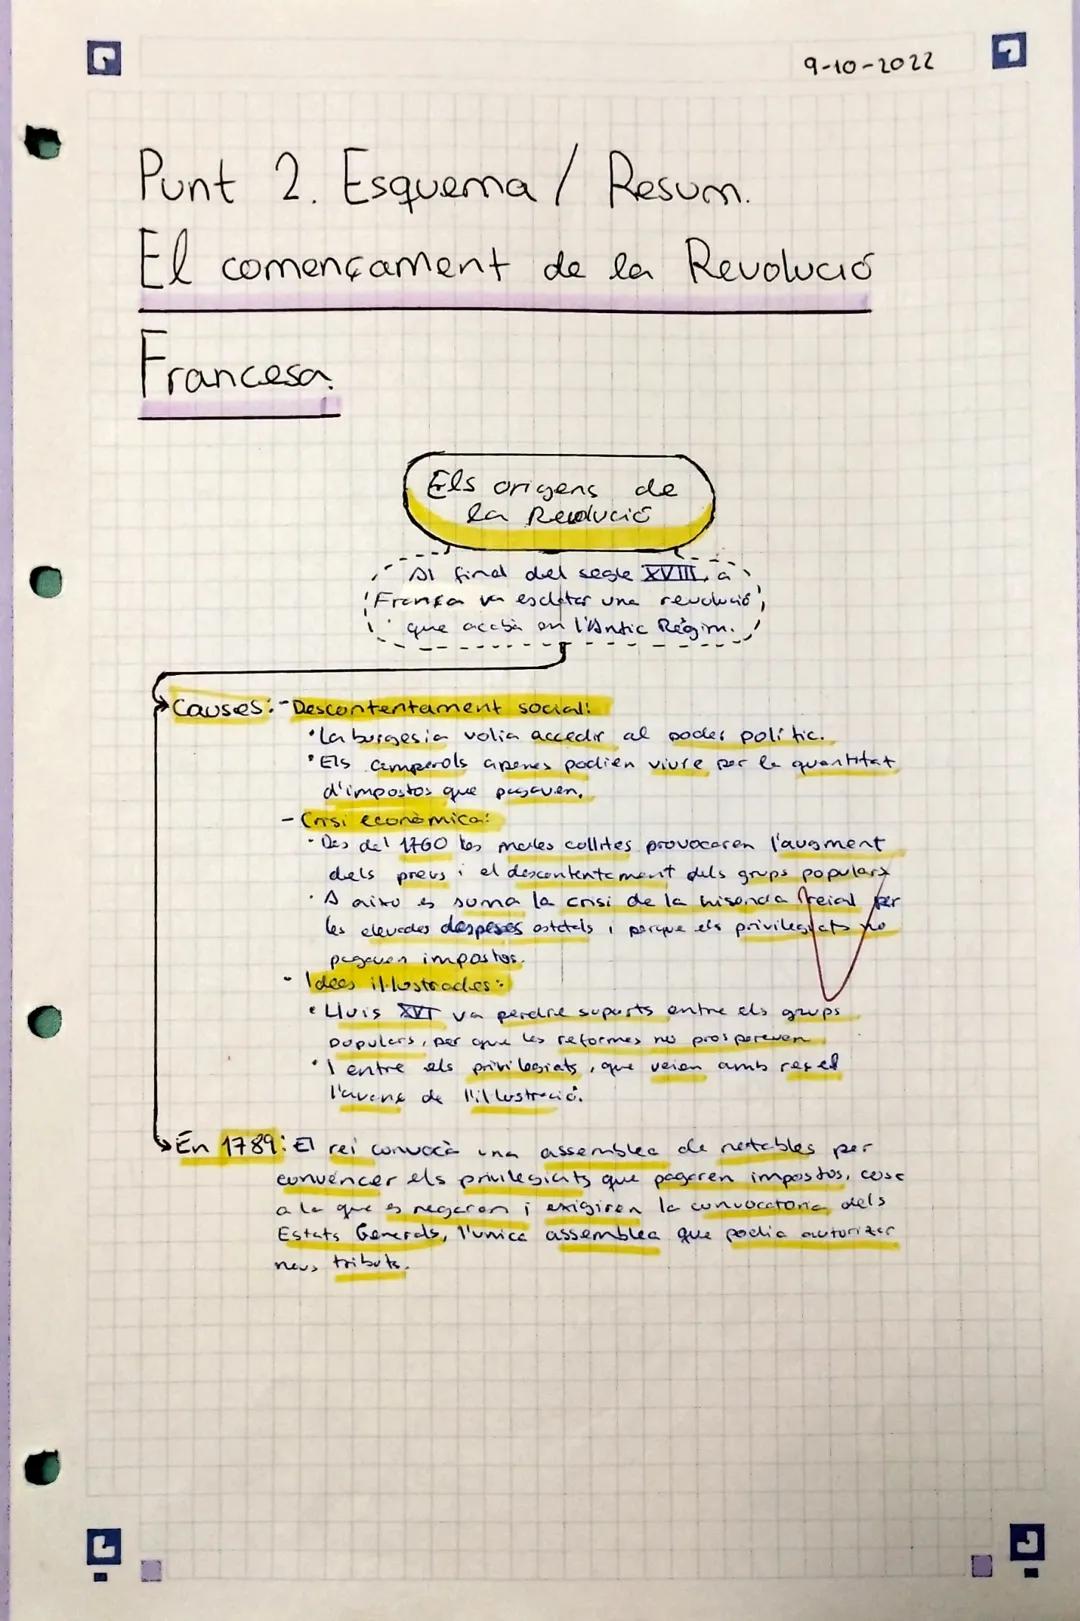 9-10-2022
Punt 2. Esquema / Resum.
El començament de la Revolució
Francesa.
Els orígens de
la Revolució
Al final del segle XVIII, a
França va esclatar una revolució
que acabà en l'Antic Règim.
Causes: - Descontentament social:
• La burgesia volia accedir al poder polític.
• Els camperols apenes podien viure per la quantitat
d'impostos que pagaven.
- Crisi econòmica:
• Des del 1760 les males collites provocaren l'augment
dels preus i el descontentament dels grups populars
• A això es suma la crisi de la hisenda reial per
les elevades despeses estatals i perque els privilegiats no
pagaven impostos.
- Idees il·lustrades:
• Lluis XVI va perdre suports entre els grups
populars, per que les reformes no prosperaven
• I entre els privilegiats, que veien amb recel
l'avanç de l'il·lustració.
En 1789: El rei convocà una assemblea de notables per
convèncer els privilegiats que pagaren impostos, cosa
a la que es negaren i exigiren la convocatoria dels
Estats Generals, l'unica assemblea que podia autoritzar
nous tributs.